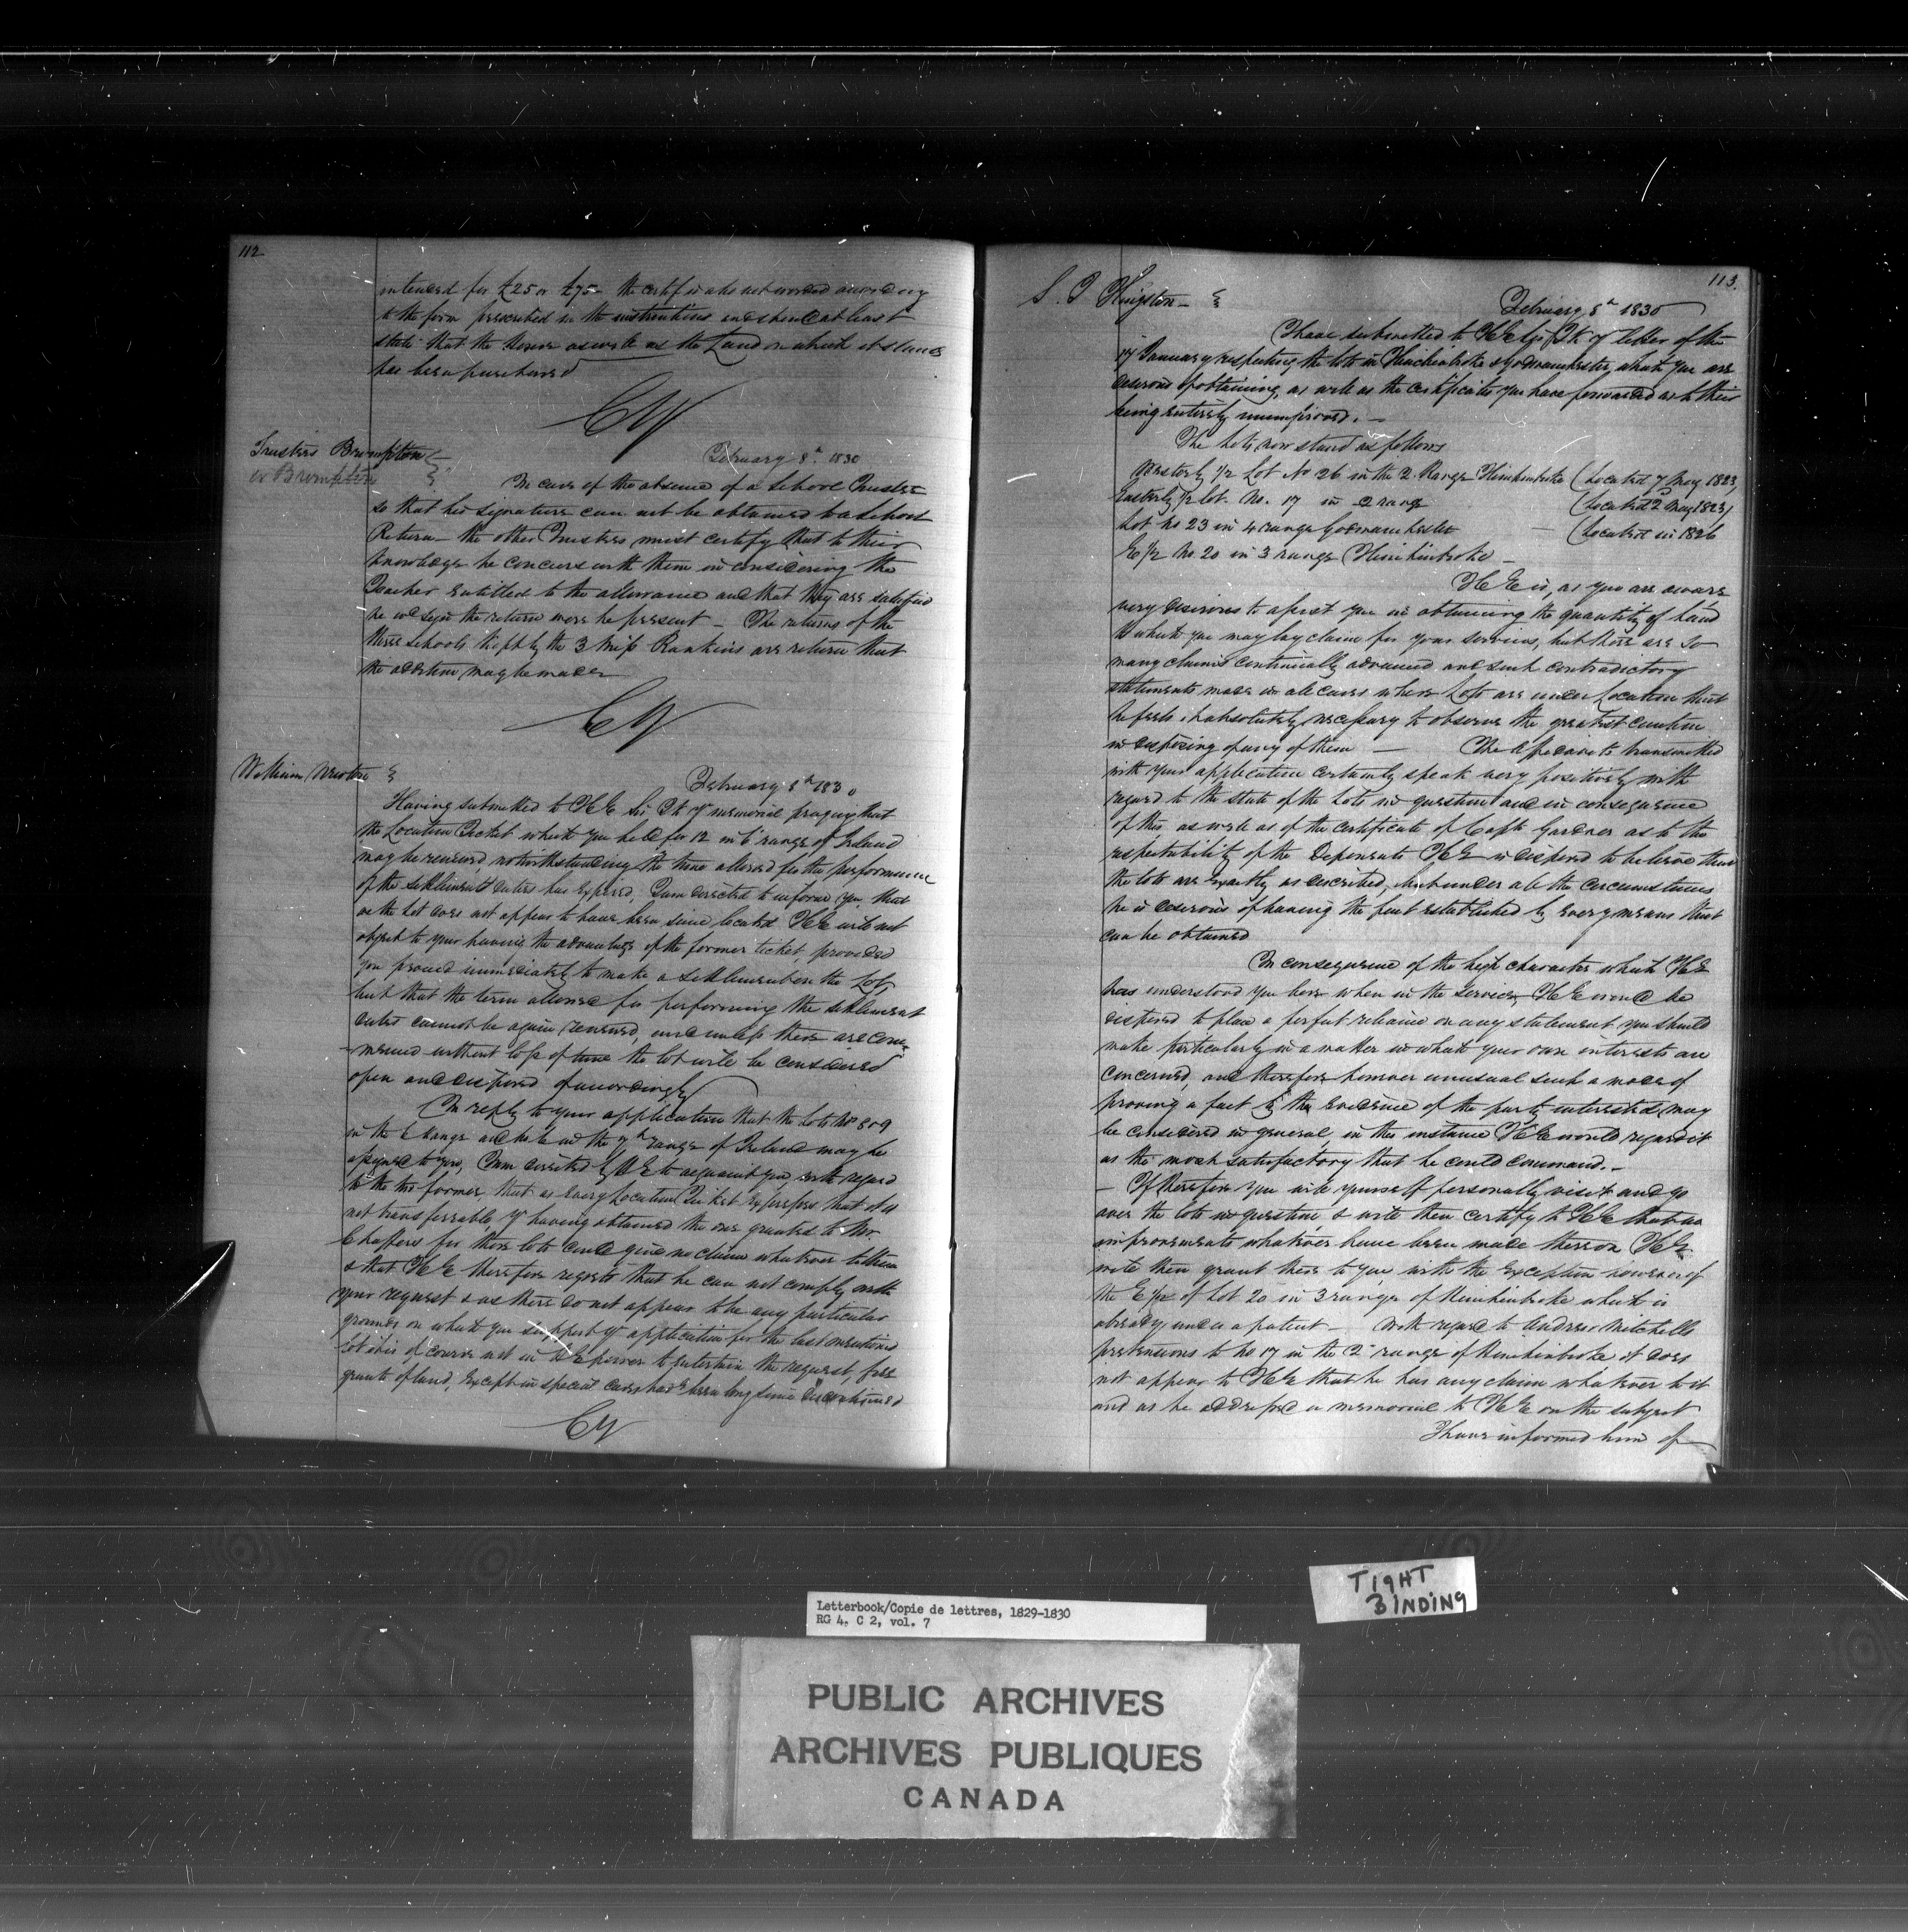 112
intended for £25 or £75 the certificate not worded according
to the form prescribed in the instructions and should at least
state that the House as well as the Land on which it stands
has been purchased
CY
Trustees Brompton
or Brompton
February 8th 1830
In case of the absence of a School Trustee
so that his signature can not be obtained to a School
Return the other Trustees must certify that to their
knowledge he concurs with them in considering the
Teacher entitled to the allowance and that they are satisfied
he wd sign the return were he present – The returns of the
three schools kept by the 3 Miss Rankins are return that
the addition may be made
CY
William
February 8th 1830
Having submitted to HE Sir Jk yr memorial praying that
the Location Ticket which you held for 12 in 6 range of Ireland
may be renewed, notwithstanding the time allowed for the performance
of the settlement duties has expired, I am directed to inform you that
as the Lot does not appear to have been since located HE will not
object to your having the advantage of the former ticket, provided
you proceed immediately to make a settlement on the Lot,
but that the term allowed for performing the settlement
duties cannot be again renewed, and unless there are com-
-menced without loss of time the lot will be considered
open and disposed of accordingly
In reply to your application that the Lots No 8 & 9
in the 6 Range and in the 7th range of Ireland may be
assigned to you, I am directed by HE to acquaint you with regard
to the two former, that as every Location Ticket expresses that it is
not transferrable, yr having obtained the one granted to Mr.
Chaffers for those lots could give no claim whatever to them
& that HE therefore regrets that he can not comply with
your request & as there do not appear to be any particular
grounds on which you support yr application for the last mentioned
lot it is of course not in HE power to entertain the request, free
grants of land, except in special cases having been long since discontinued
CY
113.
S. J Kingston
February 8th 1830
I have submitted to HE Sir Jk yr letter of the
17 January respecting the lots in Hinchinbroke & Godmanchester which you are
desirous of obtaining, as well as the certificates you have forwarded as to their
being entirely unimproved. –
The lots now stand as follows
Westerly 1/2 Lot No 26 in the 2 Range Hinchinbroke (Located 7 May 1823)
Easterly 1/2 lot No. 17 in 2 range (located 2d May 1823)
Lot No 23 in 4 range Godmanchester – (located in 1826
E 1/2 No 20 in 3 range Hinchinbroke –
HE is, as you are aware
very desirous to assist you in obtaining the quantity of land
to which you may lay claim for your services, but there are so
many claims continually advanced and such contradictory
statements made in all cases where Lots are under Location that
he feels it absolutely necessary to observe the greatest caution
in disposing of any of them – The Affidavits transmitted
with your application certainly speak very positively with
regard to the state of the lots in question and in consequence
of this as well as of the certificate of Capt Gardner as to the
respectability of the Deponents HE is disposed to believe that
the lots are exactly as described, but under all the circumstances
he is desirous of having the fact established by every means that
can be obtained
In consequence of the high character which HE
has understood you bore when in the service, HE would be
disposed to place a perfect reliance on any statement you should
make particularly in a matter in which your own interests are
concerned, and therefore however unusual such a mode of
proving a fact by the evidence of the party interested may
be considered in general, in this instance HE would regard it
as the most satisfactory that he could command. –
– If therefore you will yourself personally visit and go
over the lots in question, & will then certify to HE that no
improvements whatever have been made thereon HE
will then grant them to you with the exception however of
the E 1/2 of Lot 20 in 3 range of Hinchinbroke which is
already under a patent – With regard to Andrew Mitchells
pretensions to No 17 in the 2d range of Hinchinbroke it does
not appear to HE that he has any claim whatever to it
and as he addressed a memorial to HE on the subject
I have informed him of
TIGHT
BINDING
Letterbook/Copie de lettres, 1829-1830
RG 4, C 2, vol. 7
PUBLIC ARCHIVES
ARCHIVES PUBLIQUES
CANADA